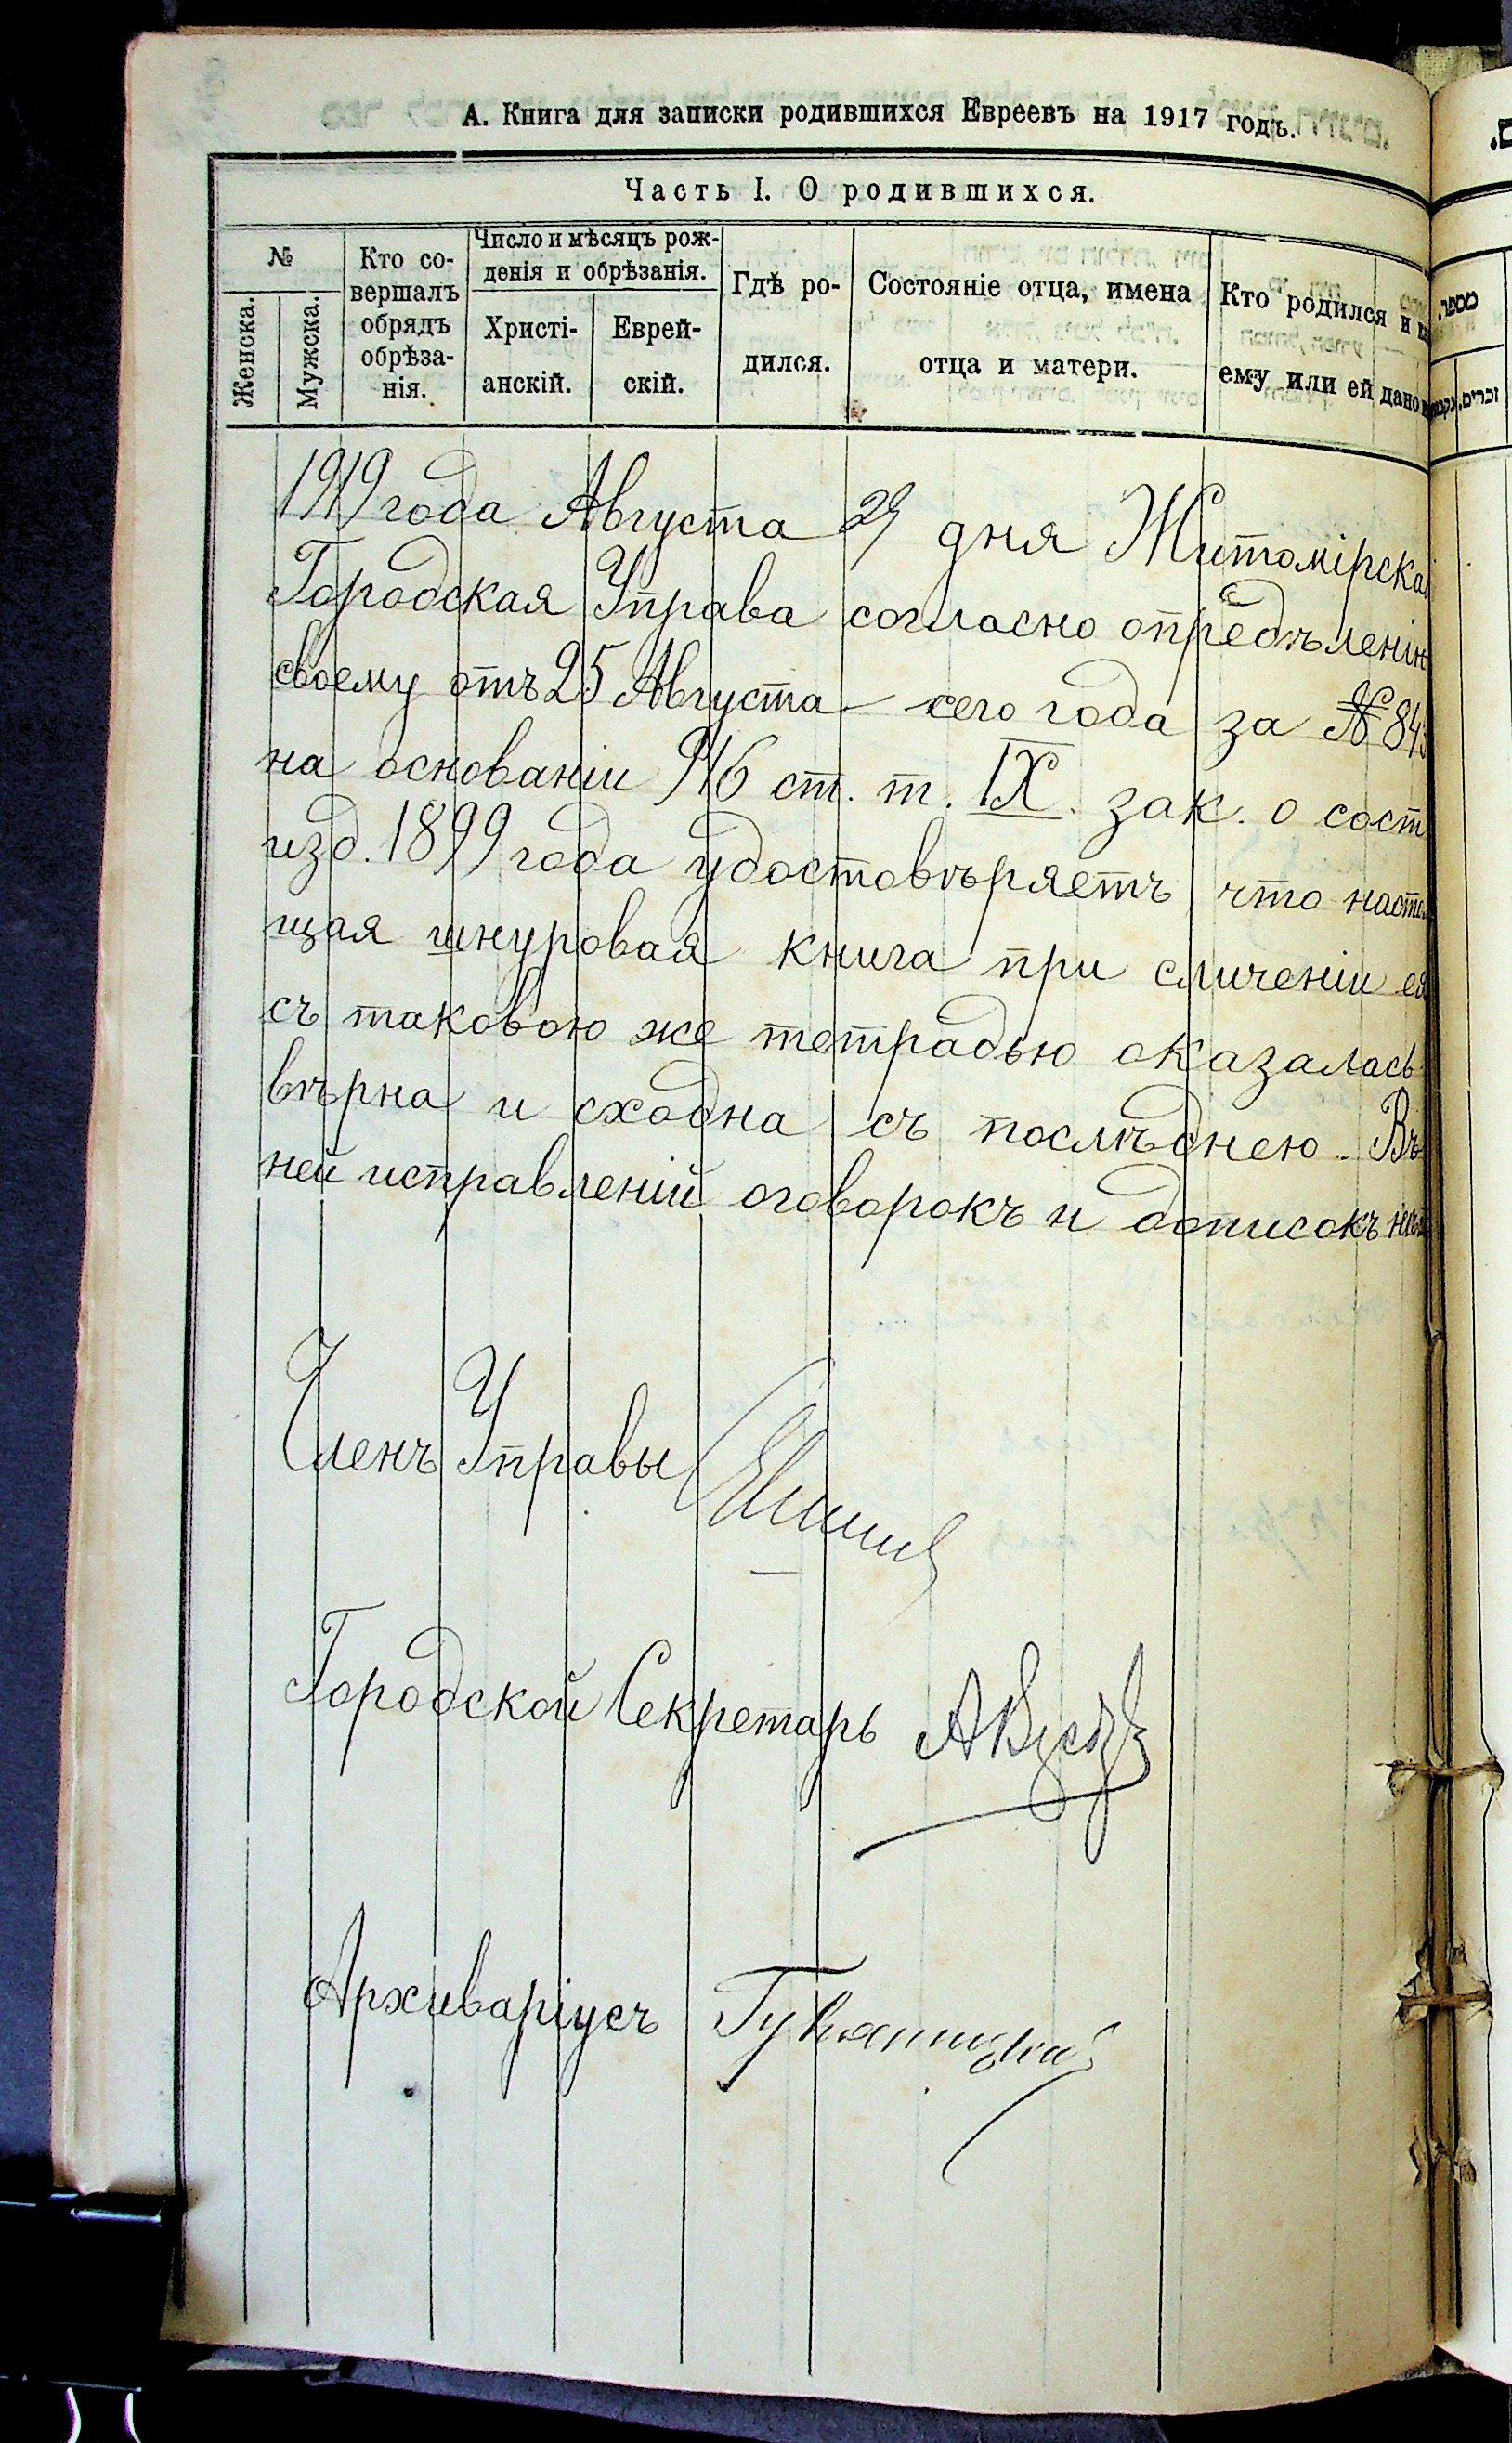 А. Книга для записки родившихся Евреевъ на 1917 годъ.
Часть I. О родившихся.
№
Женска.
Мужска.
Кто со-
вершалъ
обрядъ
обрѣза-
нія.
Число и мѣсяцъ рож-
денія и обрѣзанія.
Христі-
анскій.
Еврей-
скій.
Гдѣ ро-
дился.
Состояніе отца, имена
отца и матери.
Кто родился и
ему или ей дано
1919 года Августа 29 дня Житомірска
Городская Управа согласно опредѣленію
своему отъ 25 Августа сего года за №
на основаніи 916 ст. т. IX. зак. о сост
изд. 1899 года удостовѣряетъ что настоя
щая шнуровая книга при сличеніи ея
съ таковою же тетрадью оказалась
вѣрна и сходна съ послѣднею. Въ
ней исправленій оговорокъ и дописокъ
Членъ Управы
Городской Секретарь
Архиваріусъ
מספר.
זכרים.